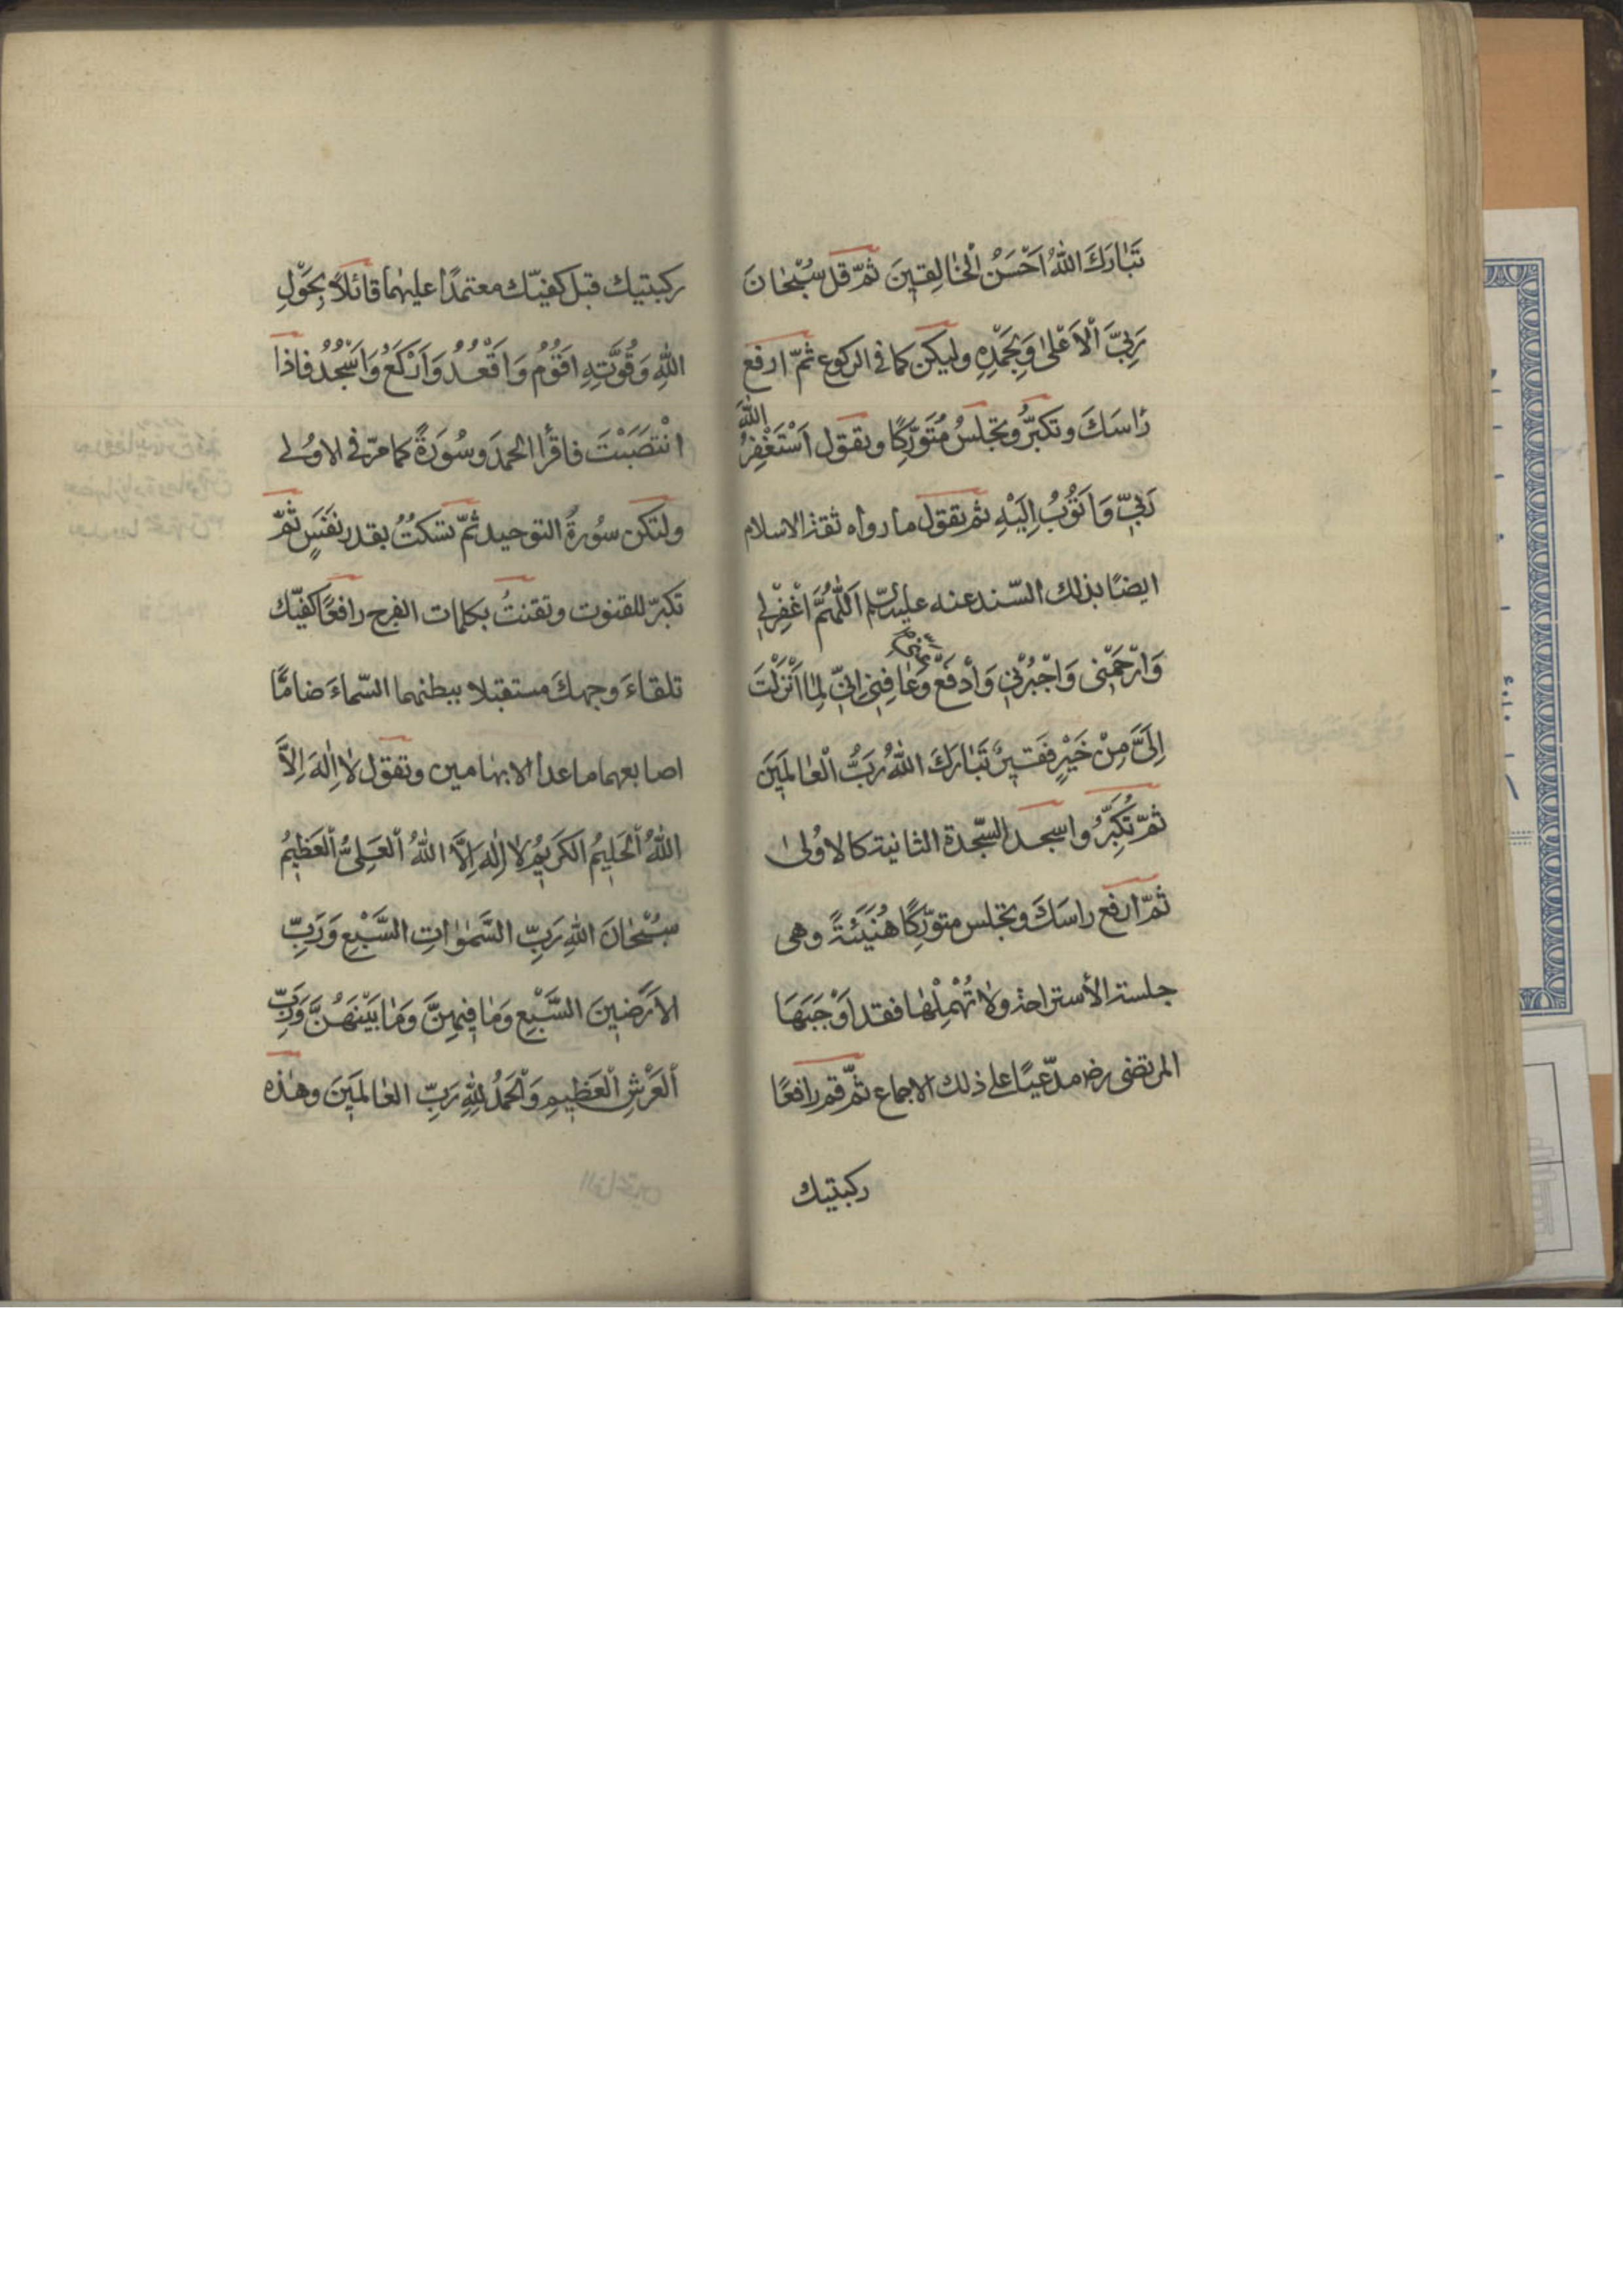 تَبٰارَكَ اللّٰهُ اَحْسَنُ الْخٰالِقينَ ثمّ قل سُبْحٰانَ
رَبِّيَ الْاَعْلىٰ وَبِحَمْدِهِ وليكن كما فى الركوع ثمّ ارفع
رٰاسَكَ وتكبّرُ وتجلسُ مُتَوَرِّكًا وتقول اَسْتَغْفِرُ اللّٰهَ
رَبّي وَاَتُوبُ اِلَيْهِ ثم تقول ما رواه ثقة الاسلام
ايضًا بذلك السّند عنه عليه السّلم اَللّٰهُمَّ اغْفِرْلي
وَارْحَمْنى وَاجْبُرْني وَادْفَعْ عَنّي وَعٰافِني اِنّي لِمٰا اَنْزَلْتَ
اِلَيَّ مِنْ خَيْرٍ فَقيرٌ تَبٰارَكَ اللّٰهُ رَبُّ الْعٰالَمينَ
ثمّ تُكَبِّرُ واسجد السّجدة الثانية كالاُولىٰ
ثمّ ارفع راسَكَ وتجلس متورّكًا هُنَيْئَةً وهى
جلسة الأستراحة ولا تُهْمِلْهٰا فقد اَوْجَبَهَا
المرتضى رض مدّعيًا على ذلك الاجماع ثمّ قم رافعًا
ركبتيك
ركبتيك قبل كفيّك معتمدًا عليهما قائلاً بِحَوْلِ
اللّٰهِ وَقُوَّتِهِ اَقُوْمُ وَاَقْعُدُ وَاَرْكَعُ وَاَسْجُدُ فاذا
انْتَصَبْتَ فاقرأ الحمدَ وسُورَةً كما مرّ فى الاولى
ولتكن سُورةُ التوحيد ثمّ تسكتُ بقدر نَفَسٍ ثمّ
تكبّر للقنوت وتقنتُ بكلمات الفرج رافعًا كفيّك
تلقاءَ وجهكَ مستقبلا ببطنهما السّماءَ ضامًّا
اصابعهما ما عدا الابهامين وتقول لا اِلٰهَ اِلاَّ
اللّٰهُ الْحَليمُ الكَريمُ لا اِلٰهَ اِلاَّ اللّٰهُ الْعَلِىُّ الْعَظيمُ
سُبْحٰانَ اللّٰهِ رَبِّ السَّمٰوٰاتِ السَّبْعِ وَرَبِّ
الاَرَضينَ السَّبْعِ وَمٰا فيهِنَّ وَمٰا بَيْنَهُنَّ وَرَبِّ
الْعَرْشِ الْعَظيمِ وَالْحَمْدُ لِلّٰهِ رَبِّ العٰالَمينَ وهٰذه